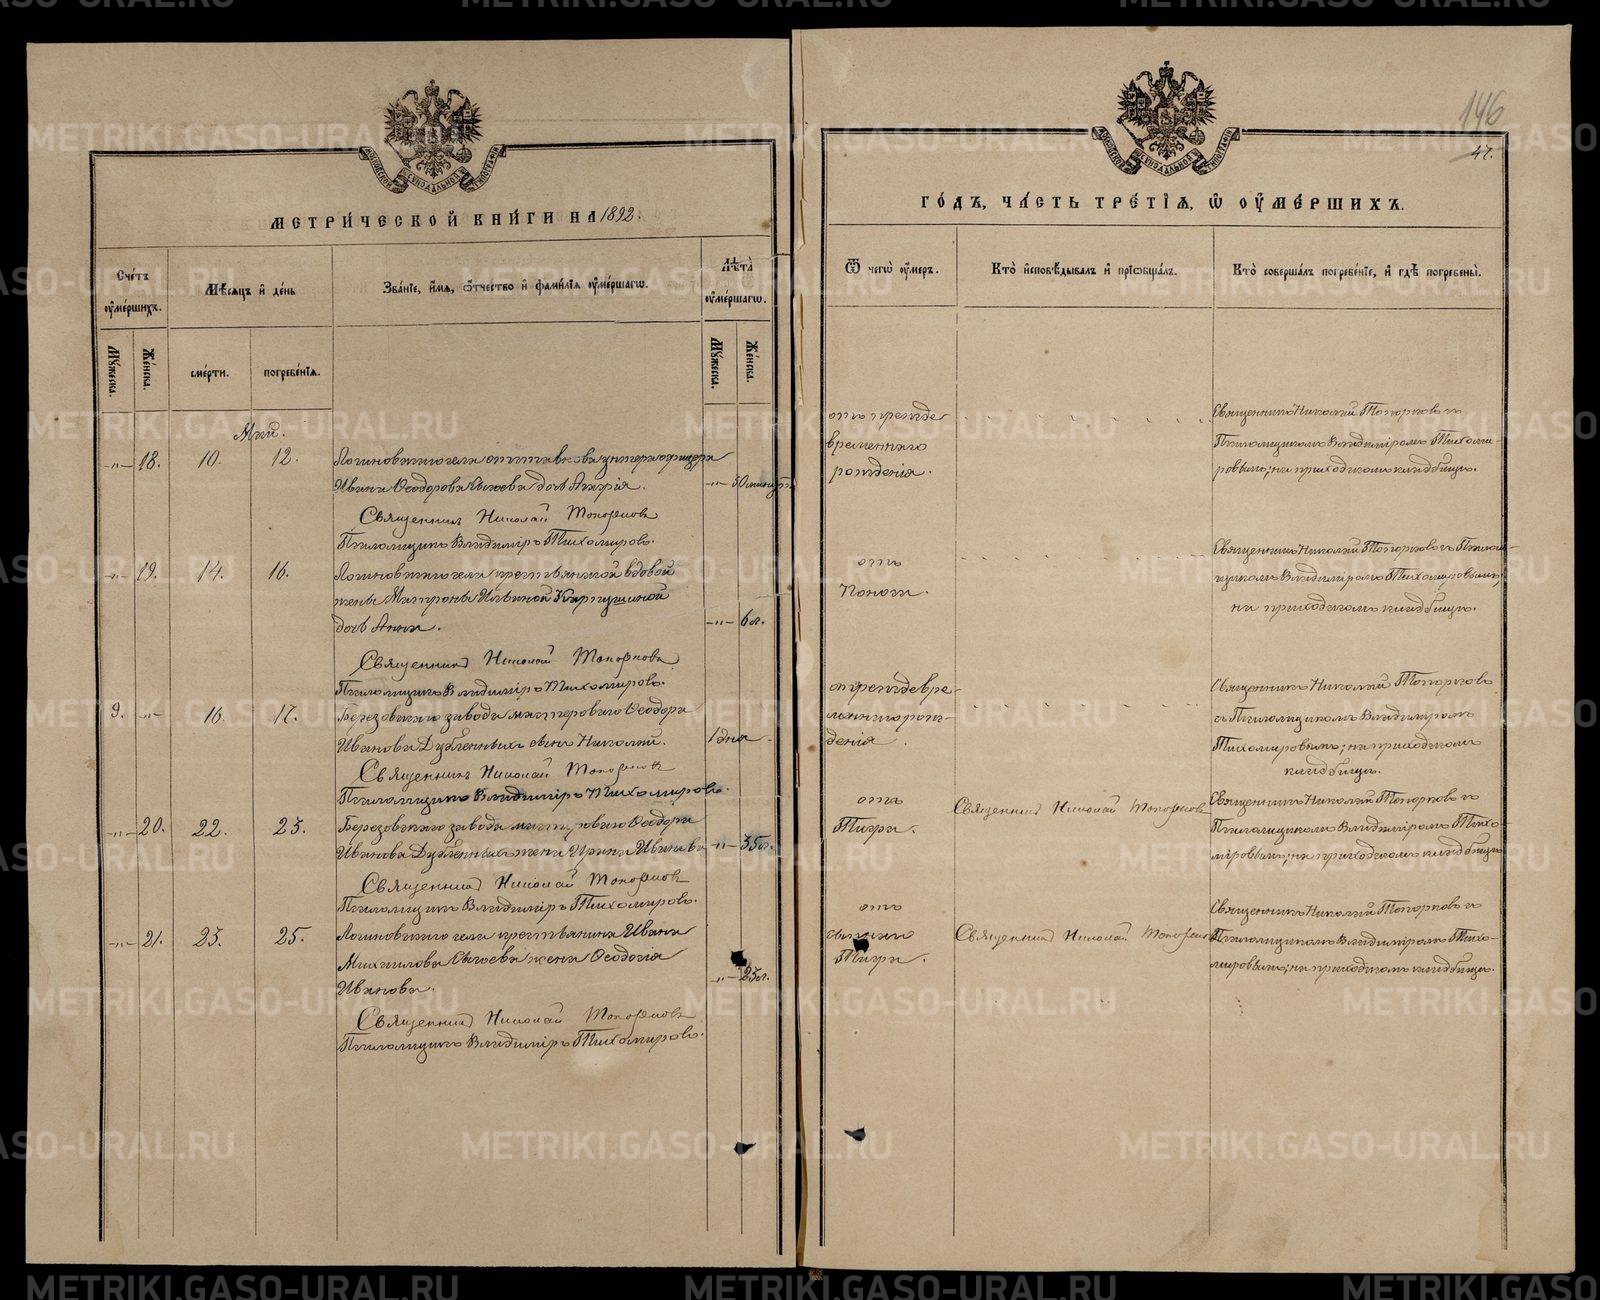 146
47.
МЕТРИ́ЧЕСКОЙ КНИ́ГИ НА 1892.
Сче́тъ ᲂу҆ме́ршихъ.
Мѣ́сяцъ и҆ де́нь
Зва́нїе, и҆́мя, ѻ҆́тчество и҆ фами́лїя ᲂу҆ме́ршагѡ.
Лѣ́та ᲂу҆ме́ршагѡ.
Му́жеска.
Же́нска.
сме́рти.
погребе́нїя.
Му́жеска.
Же́нска.
Май.
-"- 18. 10. 12. Логиновскаго села отставнова унтеръ офицера
Ивана Ѳеодорова Сычева дочь Марія. -"- 30 минутъ
Священникъ Николай Топорковъ
Псаломщикъ Владиміръ Тихомировъ.
-"- 19. 14. 16. Логиновскаго села крестьянской вдовой
жены Матроны Ильиной Карпушиной
дочь Анна. -"- 6 л.
Священникъ Николай Топорковъ
Псаломщикъ Владиміръ Тихомировъ.
9. -"- 16. 17. Березовскаго завода мастероваго Ѳеодора
Иванова Дубленныхъ сынъ Николай. 1 дня -
Священникъ Николай Топорковъ
Псаломщикъ Владиміръ Тихомировъ.
-"- 20. 22. 23. Березовскаго завода мастероваго Ѳеодора
Иванова Дубленныхъ жена Ирина Иванова -"- 35 л.
Священникъ Николай Топорковъ
Псаломщикъ Владиміръ Тихомировъ.
-"- 21. 23. 25. Логиновскаго села крестьянина Ивана
Михайлова Сычева жена Ѳеодосія
Иванова. -"- 25 л.
Священникъ Николай Топорковъ
Псаломщикъ Владиміръ Тихомировъ.
ГО́ДЪ, ЧА́СТЬ ТРЕ́ТЇЯ, Ѡ҆ ОУ҆МЕ́РШИХЪ.
Ѿ чегѡ̀ ᲂу҆́меръ.
Кто̀ и҆сповѣ́дывалъ и҆ прїѡбща́лъ.
Кто̀ соверша́лъ погребе́нїе, и҆ гдѣ̀ погребены̀.
отъ прежде
временнаго
рожденія.
Священникъ Николай Топорковъ съ
Псаломщикомъ Владиміромъ Тихоми-
ровымъ; на приходскомъ кладбищѣ.
отъ
поноса.
Священникъ Николай Топорковъ съ Псалом-
щикомъ Владиміромъ Тихомировымъ;
на приходскомъ кладбищѣ.
отъ преждевре-
меннаго рож-
денія.
Священникъ Николай Топорковъ
съ Псаломщикомъ Владиміромъ
Тихомировымъ; на приходскомъ
кладбищѣ.
отъ
Тифа.
Священникъ Николай Топорковъ
Священникъ Николай Топорковъ съ
Псаломщикомъ Владиміромъ Тихо-
мировымъ; на приходскомъ кладбищѣ
отъ
Тифа.
Священникъ Николай Топорковъ
Священникъ Николай Топорковъ съ
Псаломщикомъ Владиміромъ Тихо-
мировымъ; на приходскомъ кладбищѣ.
METRIKI.GASO-URAL.RU